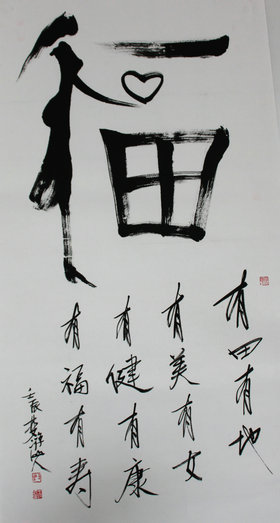 福
有田有地
有美有女
有健有康
有福有寿
壬辰